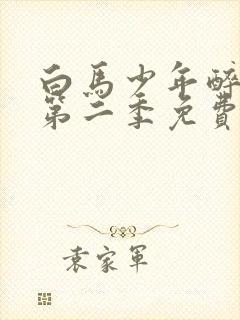 白馬少年醉
第二季免費
袁家軍